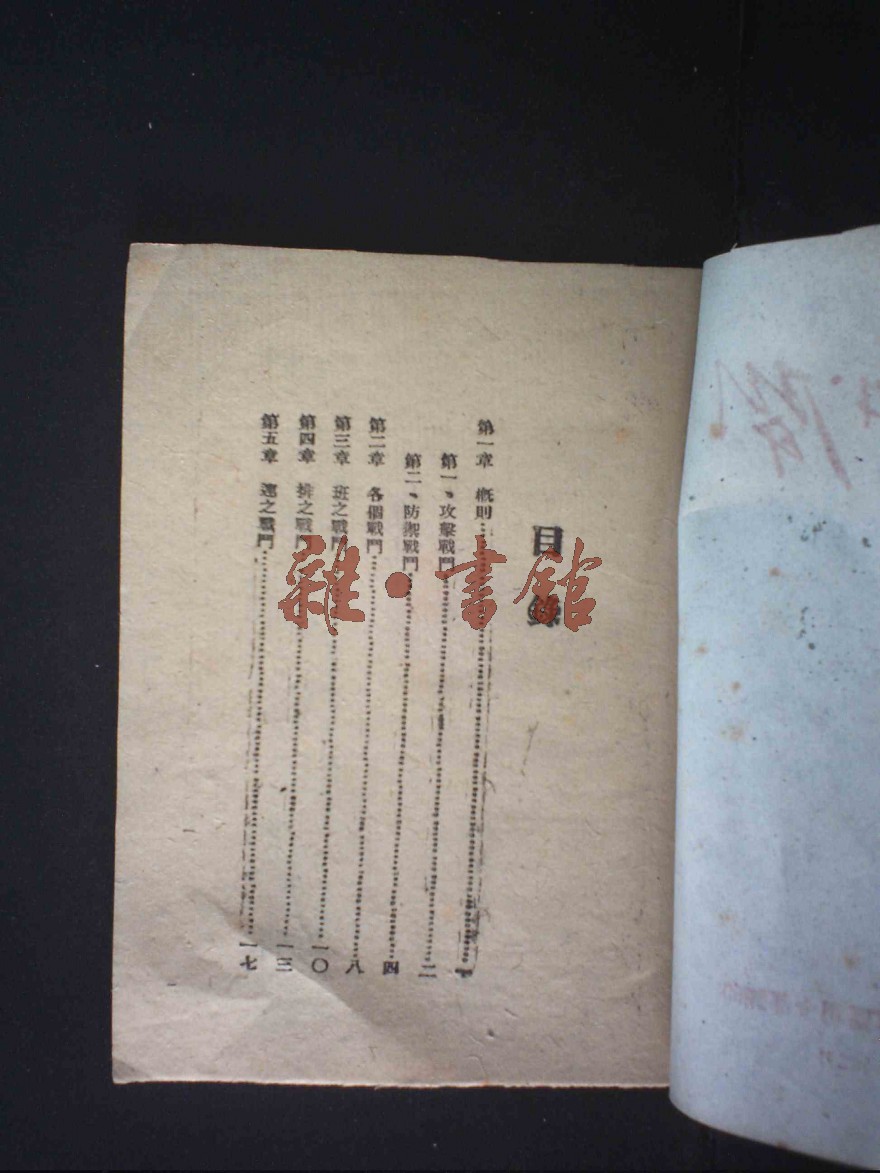 目錄
第一章 概則
第一、攻擊戰鬥 二
第二、防禦戰鬥 四
第二章 各個戰鬥 八
第三章 班之戰鬥 一〇
第四章 排之戰鬥 一三
第五章 連之戰鬥 一七
雜·書館